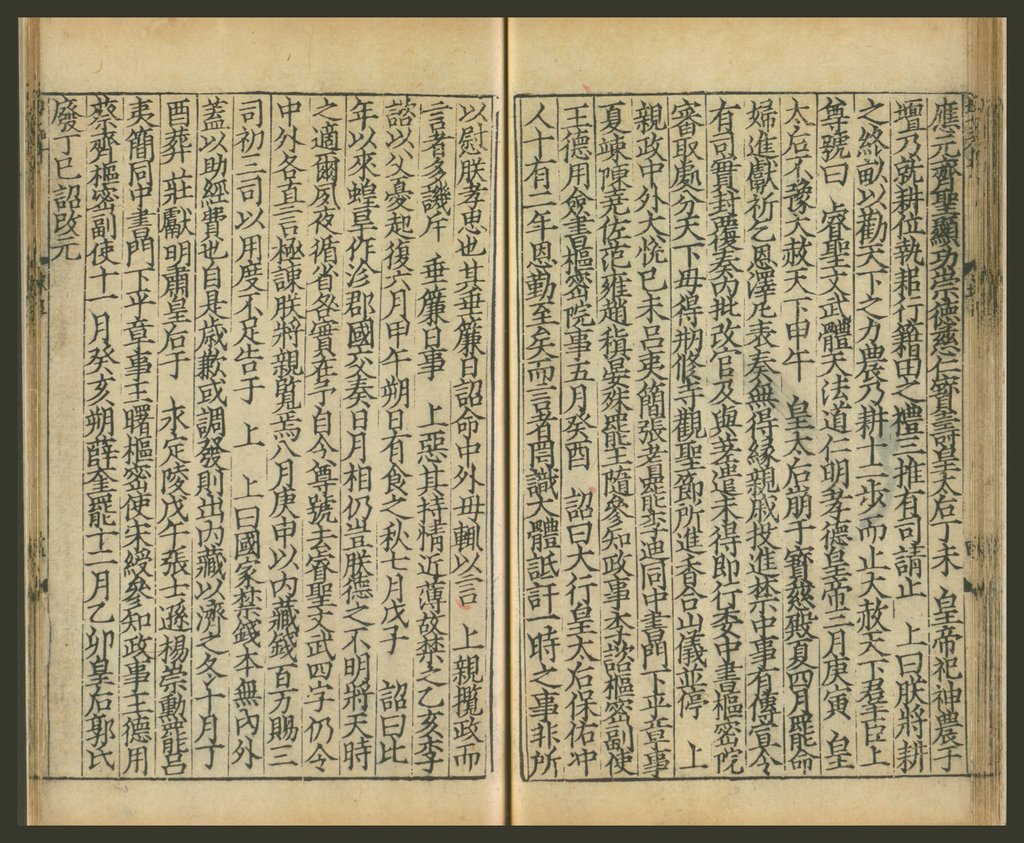 應元齊聖顯功崇德慈仁寶壽皇太后丁未　皇帝祀神農于
壇乃就耕位執耜行籍田之禮三推有司請止　上曰朕將耕
之終畝以勸天下之力農乃耕十二步而止大赦天下君臣上
尊號曰　睿聖文武體天法道仁明孝德皇帝三月庚寅　皇
太后不豫大赦天下甲午　皇太后崩于寶慈殿夏四月罷命
婦進獻祈乞恩澤凡表奏無得緣親戚投進禁中事有傳宣令
有司實封覆奏內批改官及與差遣未得即行委中書樞密院
審取處分天下毋得刱修寺觀聖節所進香合山儀並停　上
親政中外大悅己未呂夷簡張耆罷李迪同中書門下平章事
夏竦陳堯佐范雍趙稹晏殊罷王隨參知政事李諮樞密副使
王德用僉書樞密院事五月癸酉　詔曰大行皇太后保佑冲
人十有二年恩勤至矣而言者罔識大體詆訐一時之事非所
以慰朕孝思也其垂簾日詔命中外毋輒以言　上親攬政而
言者多譏斥　垂簾日事　上惡其持情近薄故禁之乙亥李
諮以父憂起復六月甲午朔日有食之秋七月戊子　詔曰比
年以來蝗旱作沴郡國交奏日月相仍豈朕德之不明將天時
之適爾夙夜循省咎實在予自今尊號去睿聖文武四字仍令
中外各直言極諫朕將親覽焉八月庚申以內藏錢百万賜三
司初三司以用度不足告于　上　上曰國家禁錢本無內外
蓋以助經費也自是歲歉或調發則出內藏以濟之冬十月丁
酉葬　莊獻明肅皇后于　永定陵戊午張士遜楊崇勳罷呂
夷簡同中書門下平章事王曙樞密使宋綬參知政事王德用
蔡齊樞密副使十一月癸亥朔薛奎罷十二月乙卯皇后郭氏
廢丁巳詔改元